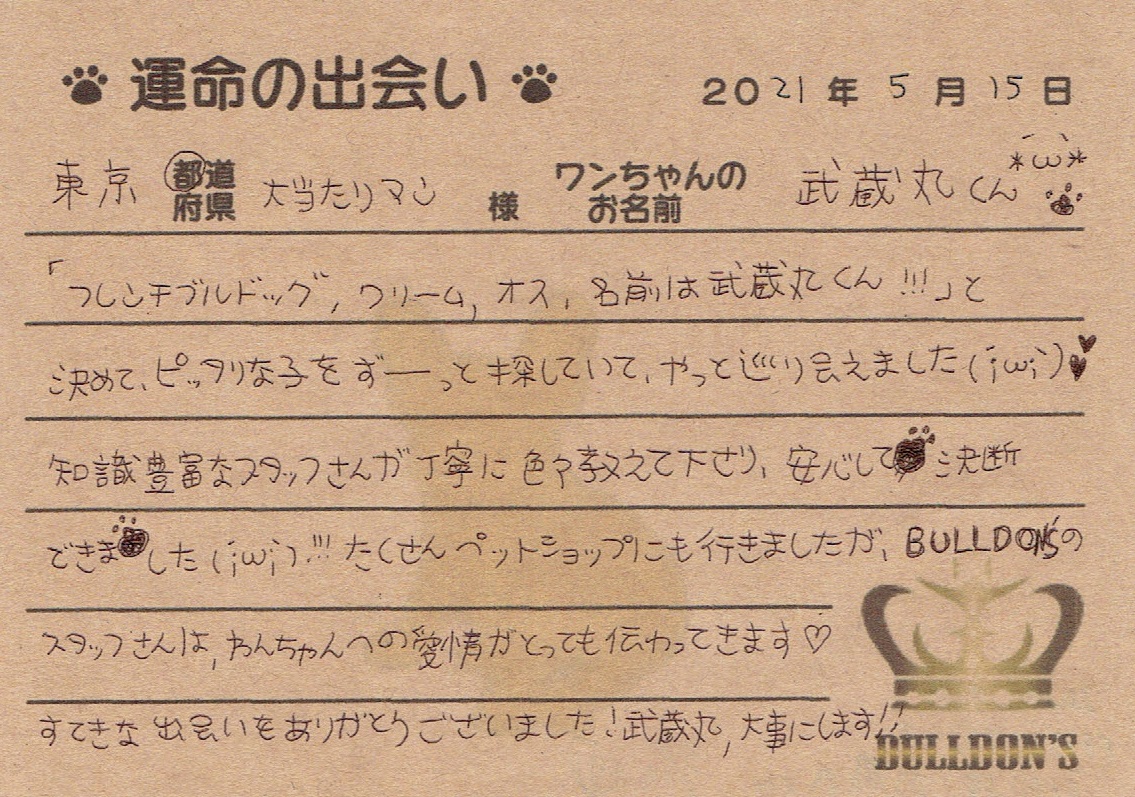 運命の出会い 2021年5月15日
東京 都道府県 大当たりマン 様 ワンちゃんのお名前 武蔵丸くん *'ω'*
「フレンチブルドッグ, クリーム, オス, 名前は武蔵丸くん!!!」と
決めて、ピッタリな子をずーーっと探していて、やっと巡り会えました(;ω;)♥♥
知識豊富なスタッフさんが丁寧に色々教えて下さり、安心して決断
できました(;ω;)!!! たくさんペットショップにも行きましたが、BULLDON'Sの
スタッフさんは, わんちゃんへの愛情がとっても伝わってきます♡
すてきな出会いをありがとうございました!武蔵丸, 大事にします!!
BULLDON'S